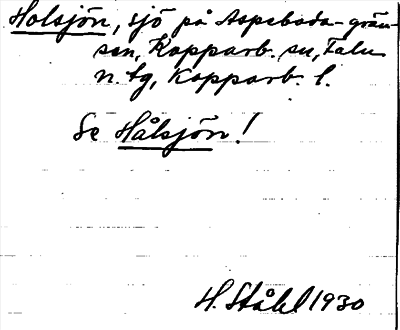 Holsjön, sjö på Aspeboda-grän-
sen, Kopparb. sn, Falu
n. tg, Kopparb. l.
Se Hålsjön!
H. Ståhl 1930